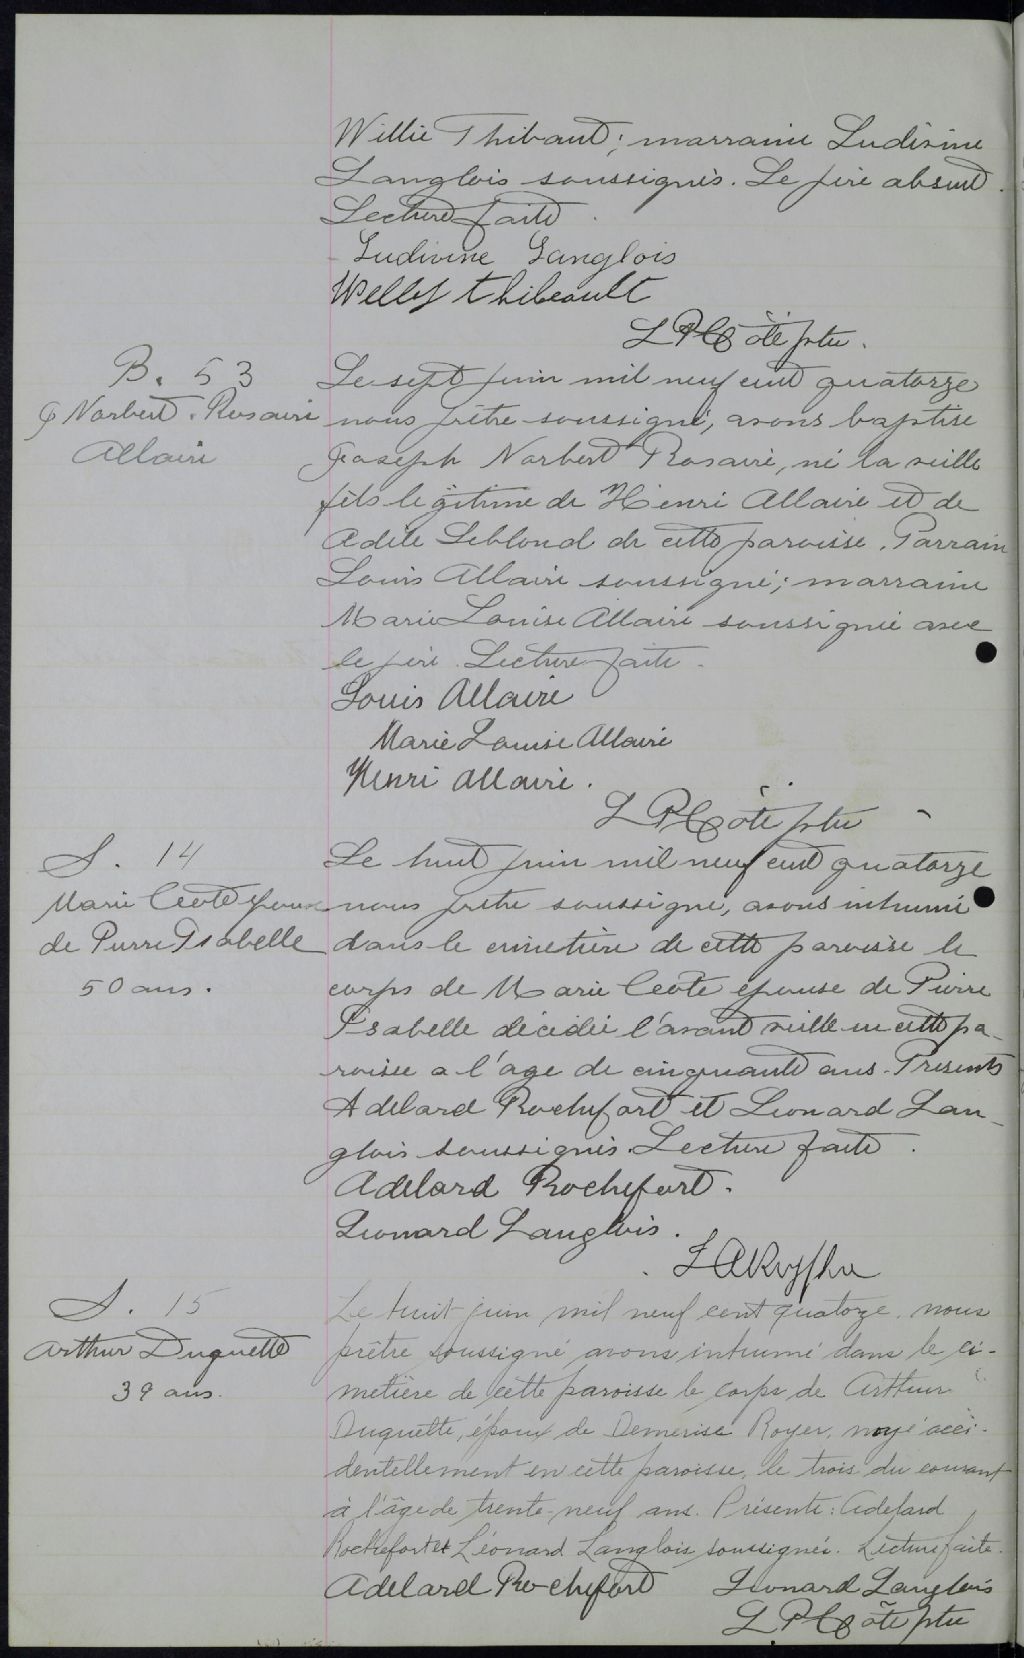 Willie Thibaut; marraine Ludivine
Langlois soussignés. Le père absent.
Lecture faite.
Ludivine Langlois
Welley Thibeault
L P Côté ptre.
B. 53
J Norbert. Rosaire
Allaire
Le sept juin mil neuf cent quatorze
nous prêtre soussigné, avons baptisé
Joseph Norbert Rosaire, né la veille
fils légitime de Henri Allaire et de
Adele Leblond de cette paroisse. Parrain
Louis Allaire soussigné; marraine
Marie Louise Allaire soussignée avec
le père. Lecture faite.
Louis Allaire
Marie Louise Allaire
Henri Allaire.
L P Côté ptre
S. 14
Marie Coté épouse
de Pierre Isabelle
50 ans.
Le huit juin mil neuf cent quatorze
nous prêtre soussigné, avons inhumé
dans le cimetière de cette paroisse le
corps de Marie Coté épouse de Pierre
Isabelle décédée l'avant veille en cette pa-
roisse a l'age de cinquante ans. Presents
Adelard Rochefort et Leonard Lan-
glois soussignés. Lecture faite.
Adelard Rochefort.
Leonard Langlois.
ptre
S. 15
Arthur Duquette
39 ans.
Le huit juin mil neuf cent quatorze, nous
prêtre soussigné avons inhumé dans le ci-
metière de cette paroisse le corps de Arthur
Duquette, époux de Demerise Royer, noyé acci-
dentellement en cette paroisse, le trois du courant
à l'âge de trente-neuf ans. Présents: Adelard
Rochefort et Léonard Langlois soussignés. Lecture faite.
Adelard Rochefort Leonard Langlois
L P Côté ptre